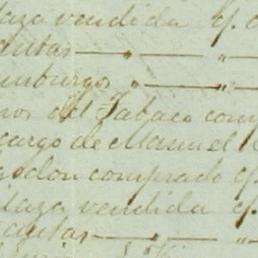 laza vendida q. 
ditas — " — " —
mburgos — " —
nos del Tabaco com
cargo de Manuel
godon comprado q.
ilaza vendida q.
ditas — " — "